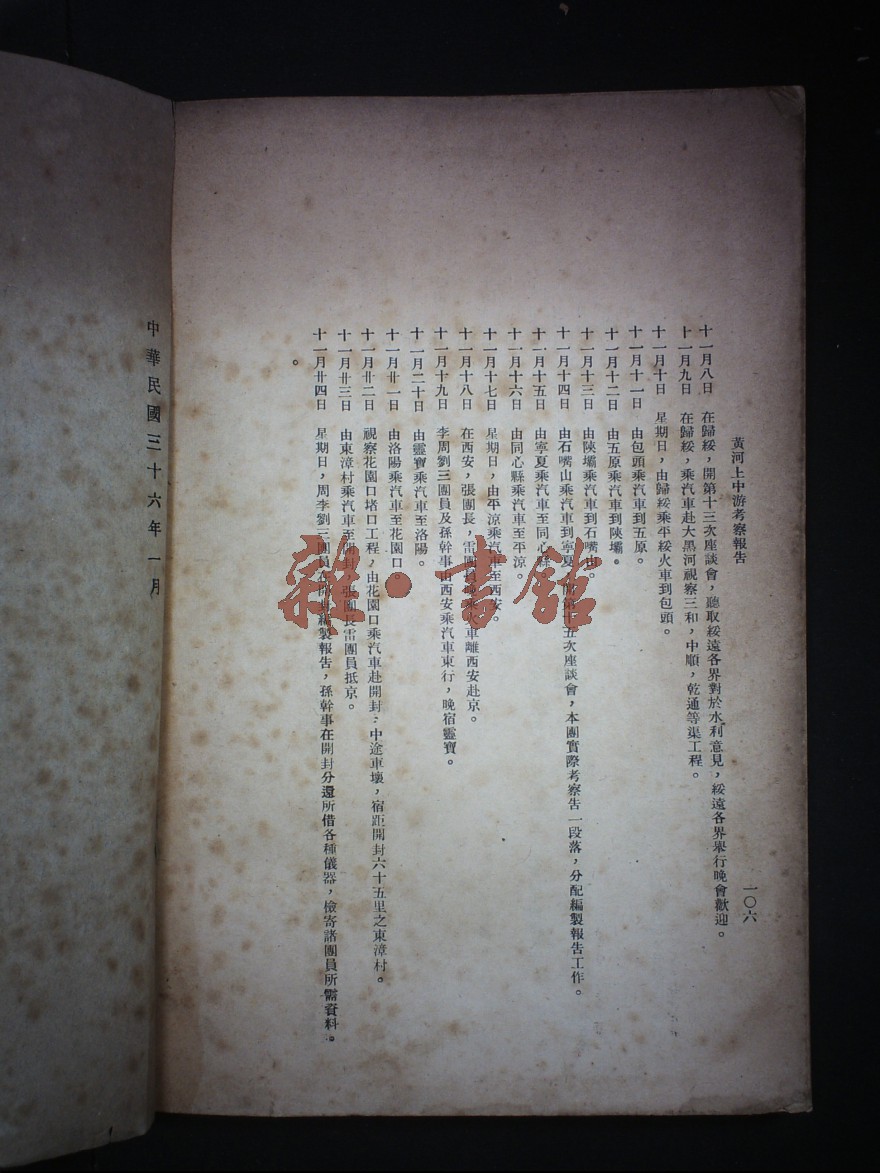 黃河上中游考察報告
一〇六
十一月八日　在歸綏，開第十三次座談會，聽取綏遠各界對於水利意見，綏遠各界舉行晚會歡迎。
十一月九日　在歸綏，乘汽車赴大黑河視察三和，中順，乾通等渠工程。
十一月十日　星期日，由歸綏乘平綏火車到包頭。
十一月十一日　由包頭乘汽車到五原。
十一月十二日　由五原乘汽車到陝壩。
十一月十三日　由陝壩乘汽車到石嘴山。
十一月十四日　由石嘴山乘汽車到寧夏，開第十五次座談會，本團實際考察告一段落，分配編製報告工作。
十一月十五日　由寧夏乘汽車至同心縣。
十一月十六日　由同心縣乘汽車至平涼。
十一月十七日　星期日，由平涼乘汽車至西安。
十一月十八日　在西安，張團長，雷團員晚乘火車離西安赴京。
十一月十九日　李周劉三團員及孫幹事由西安乘汽車東行，晚宿靈寶。
十一月二十日　由靈寶乘汽車至洛陽。
十一月廿一日　由洛陽乘汽車至花園口。
十一月廿二日　視察花園口堵口工程，由花園口乘汽車赴開封，中途車壞，宿距開封六十五里之東漳村。
十一月廿三日　由東漳村乘汽車至開封，張團長雷團員抵京。
十一月廿四日　星期日，周李劉三團員在開封編製報告，孫幹事在開封分還所借各種儀器，檢寄諸團員所需資料。
。
中華民國三十六年一月
雜·書館